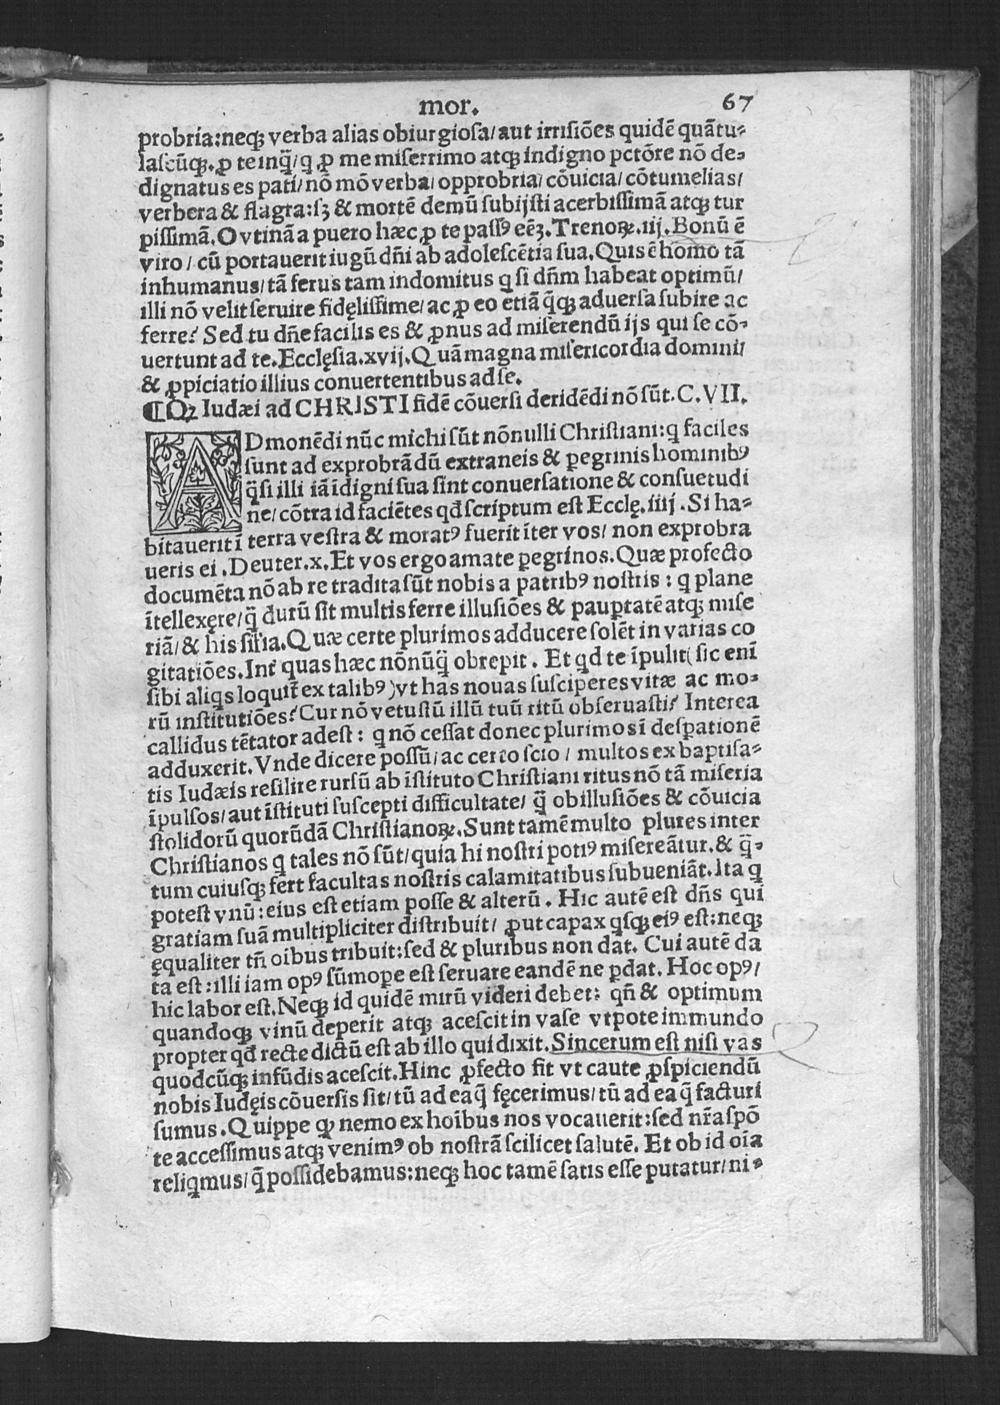 mor. 67
probria:neqꝫ verba alias obiurgiosa/aut irrisiões quidẽ quãtu⸗
lascũqꝫ.ꝓ te inq̃/q ꝓ me miserrimo atqꝫ indigno pctõre nõ de⸗
dignatus es pati/nõ mõ verba/opprobria/cõuicia/cõtumelias/
verbera & flagra:sꝫ & mortẽ demũ subijsti acerbissimã atqꝫ tur
pissimã.O vtinã a puero hæc ꝓ te passꝰ eẽꝫ.Trenoꝝ.iij.Bonũ ẽ
viro/cũ portauerit iugũ dñi ab adolescẽtia sua.Quis ẽ homo tã
inhumanus/tã ferus tam indomitus q si dñm habeat optimũ/
illi nõ velit seruire fidęlissime/ac ꝓ eo etiã q̃qꝫ aduersa subire ac
ferre? Sed tu dñe facilis es & ꝓnus ad miserendũ ijs qui se cõ⸗
uertunt ad te.Ecclęsia.xvij.Quã magna misericordia domini/
& ꝓpiciatio illius conuertentibus ad se.
¶Qꝫ Iudæi ad CHRISTI fidẽ cõuersi deridẽdi nõ sũt.C.VII.
ADmonẽdi nũc michi sũt nõnulli Christiani:q faciles
sunt ad exprobrãdũ extraneis & ꝑegrinis hominibꝰ
q̃si illi iã ĩdigni sua sint conuersatione & consuetudi
ne/cõtra id faciẽtes qđ scriptum est Ecclę.iiij.Si ha⸗
bitauerit ĩ terra vestra & moratꝰ fuerit ĩter vos/non exprobra
ueris ei.Deuter.x.Et vos ergo amate ꝑegrinos.Quæ profecto
documẽta nõ ab re tradita sũt nobis a patribꝰ nostris:q plane
ĩtellexęre/q̃ durũ sit multis ferre illusiões & pauꝑtatẽ atqꝫ mise
riã/& his sĩlia.Quæ certe plurimos adducere solẽt in varias co
gitatiões.Inť quas hæc nõnũq̃ obrepit.Et qđ te ĩpulit(sic enĩ
sibi aliqs loquiť ex talibꝰ)vt has nouas susciperes vitæ ac mo⸗
rũ institutiões?Cur nõ vetustũ illũ tuũ ritũ obseruasti? Interea
callidus tẽtator adest: q nõ cessat donec plurimos ĩ desꝑationẽ
adduxerit.Vnde dicere possũ/ac certo scio/multos ex baptisa⸗
tis Iudæis resilire rursũ ab ĩstituto Christiani ritus nõ tã miseria
ĩpulsos/aut ĩstituti suscepti difficultate/q̃ ob illusiões & cõuicia
stolidorũ quorũdã Christianoꝝ.Sunt tamẽ multo plures inter
Christianos q tales nõ sũt/quia hi nostri potiꝰ misereãtur.& q̃⸗
tum cuiusqꝫ fert facultas nostris calamitatibus subueniãt.Ita q
potest vnũ:eius est etiam posse & alterũ.Hic autẽ est dñs qui
gratiam suã multipliciter distribuit/ꝓut capax qsqꝫ eiꝰ est:neqꝫ
ęqualiter tñ oibus tribuit:sed & pluribus non dat.Cui autẽ da
ta est:illi iam opꝰ sũmope est seruare eandẽ ne ꝑdat.Hoc opꝰ/
hic labor est.Neqꝫ id quidẽ mirũ videri debet: qñ & optimum
quandoqꝫ vinũ deperit atqꝫ acescit in vase vtpote immundo
propter qđ recte dictũ est ab illo qui dixit.Sincerum est nisi vas
quodcũqꝫ infũdis acescit.Hinc ꝓfecto fit vt caute ꝓspiciendũ
nobis Iudęis cõuersis sit/tũ ad ea q̃ fęcerimus/tũ ad ea q̃ facturi
sumus.Quippe qꝫ nemo ex hoĩbus nos vocauerit:sed nřa spõ
te accessimus atqꝫ venimꝰ ob nostrã scilicet salutẽ.Et ob id oĩa
reliqmus/q̃ possidebamus:neqꝫ hoc tamẽ satis esse putatur/ni⸗